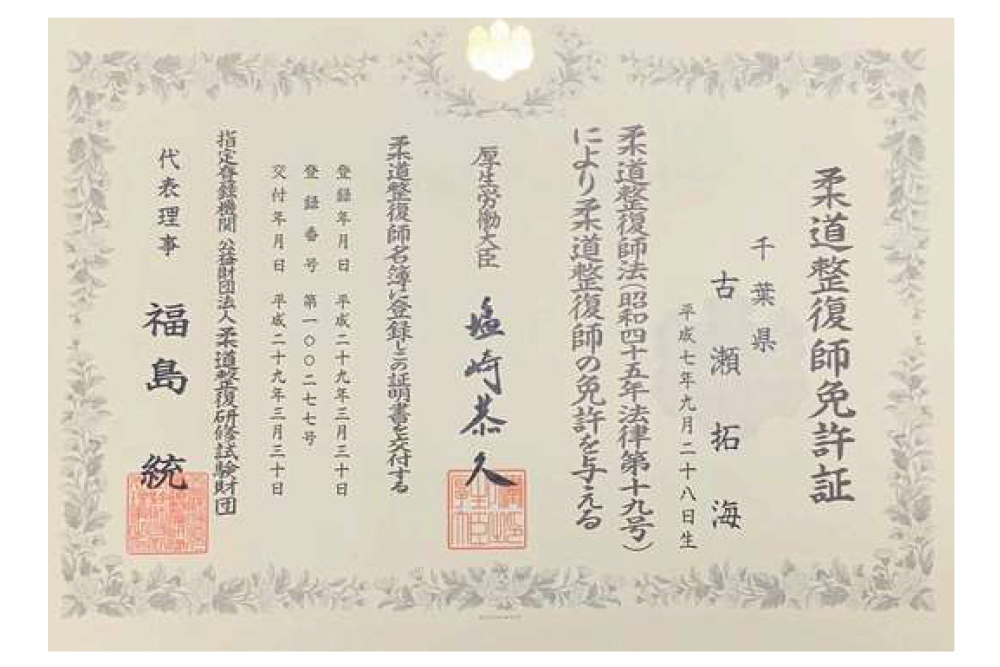 柔道整復師免許証
千葉県
古瀬拓海
平成七年九月二十八日生
柔道整復師法(昭和四十五年法律第十九号)
により柔道整復師の免許を与える
厚生労働大臣 塩崎恭久
柔道整復師名簿に登録しこの証明書を交付する
登録年月日 平成二十九年三月三十日
登録番号 第一〇〇二七七号
交付年月日 平成二十九年三月三十日
指定登録機関 公益財団法人柔道整復研修試験財団
代表理事 福島 統